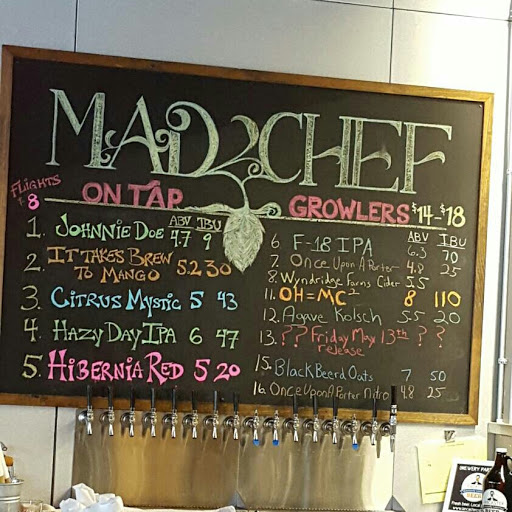 MAD CHEF
FLIGHTS
$8
ON TAP
ABV IBU
1. JOHNNIE DOE 4.7 9
2. IT TAKES BREW
TO MANGO 5.2 30
3. CITRUS MYSTIC 5 43
4. HAZY DAY IPA 6 47
5. HIBERNIA RED 5 20
GROWLERS $14-$18
ABV IBU
6. F-18 IPA 6.3 70
7. Once Upon A Porter 4.8 25
8. Wyndridge Farms Cider 5.5
11. OH=MC² 8 110
12. Agave Kolsch 5.5 20
13. ?? Friday May 13th ? ?
release
15. Black Beerd Oats 7 50
16. Once Upon A Porter Nitro 4.8 25